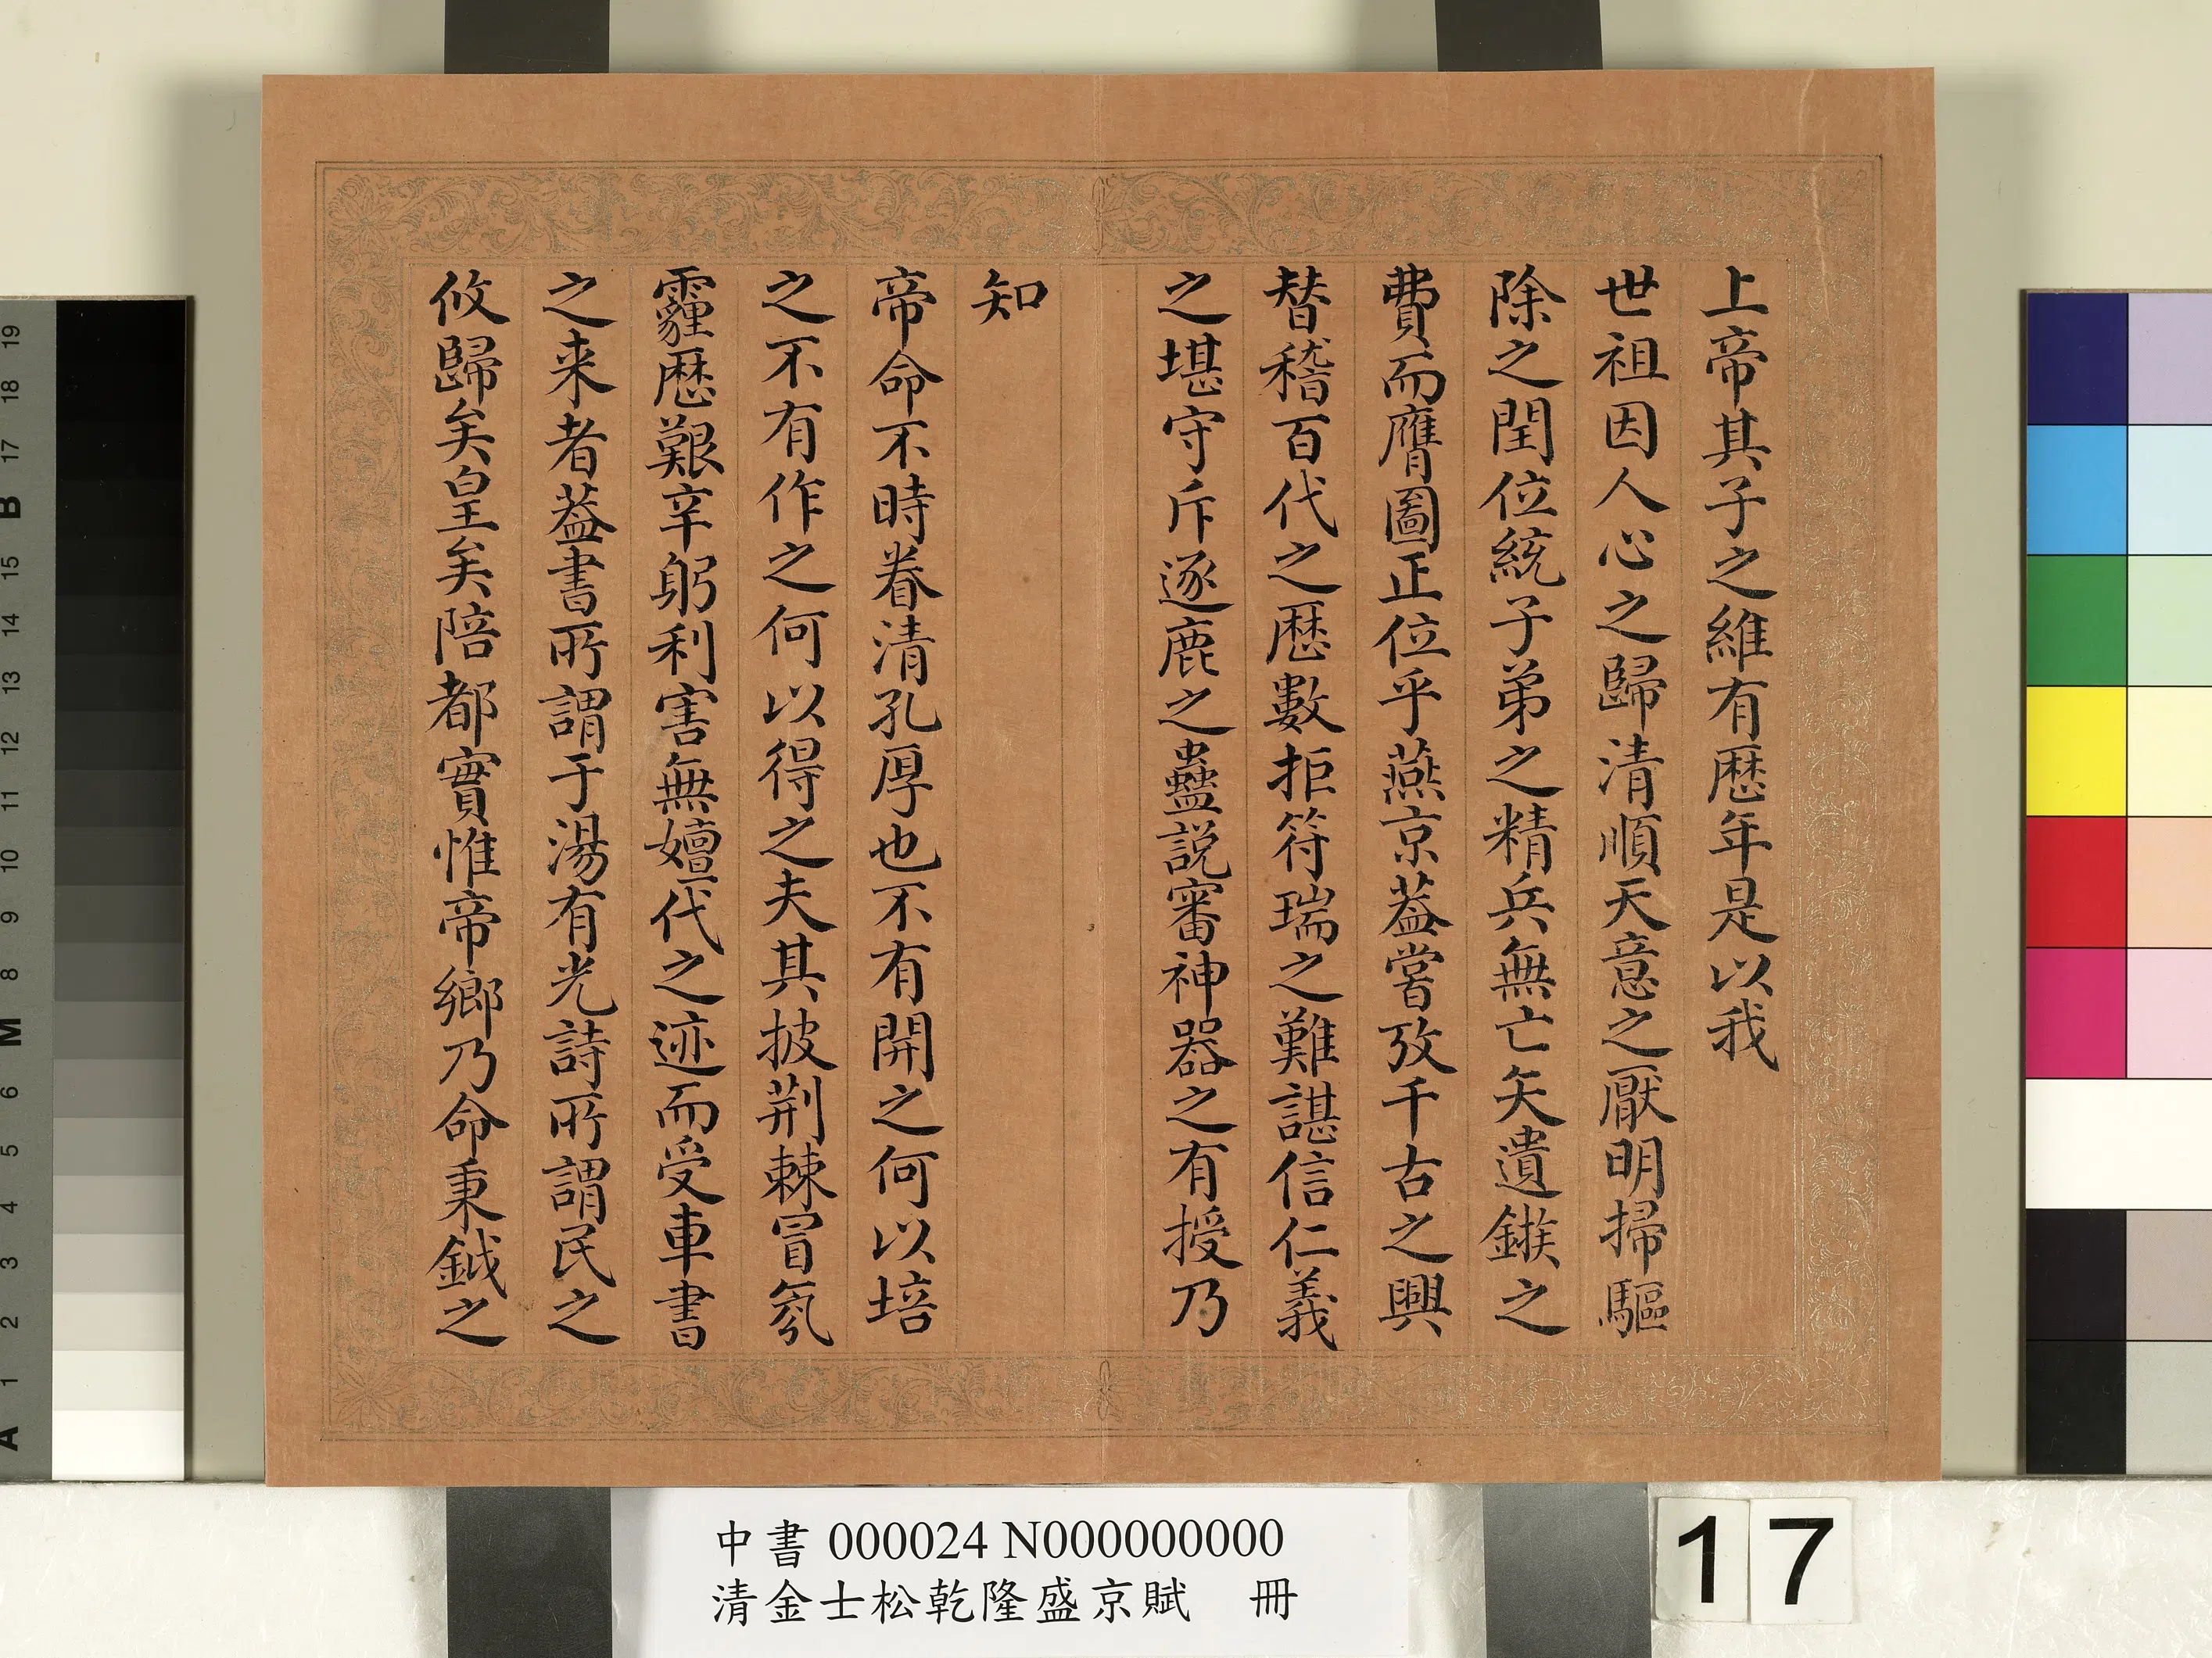 上帝其子之維有歴年是以我
世祖因人心之歸清順天意之厭明掃驅
除之閏位統子弟之精兵無亡矢遺鏃之
費而膺圖正位乎燕京葢嘗攷千古之興
替稽百代之歴數拒符瑞之難諶信仁義
之堪守斥逐鹿之蠱説審神器之有授乃
知
帝命不時眷清孔厚也不有開之何以培
之不有作之何以得之夫其披荆棘冒氛
霾歴艱辛躬利害無嬗代之迹而受車書
之来者葢書所謂于湯有光詩所謂民之
攸歸矣皇矣陪都實惟帝鄉乃命秉鉞之
中書 000024 N000000000
清金士松乾隆盛京賦 冊
17
19
18
17
B
15
14
13
12
11
10
9
8
M
6
5
4
3
2
1
A